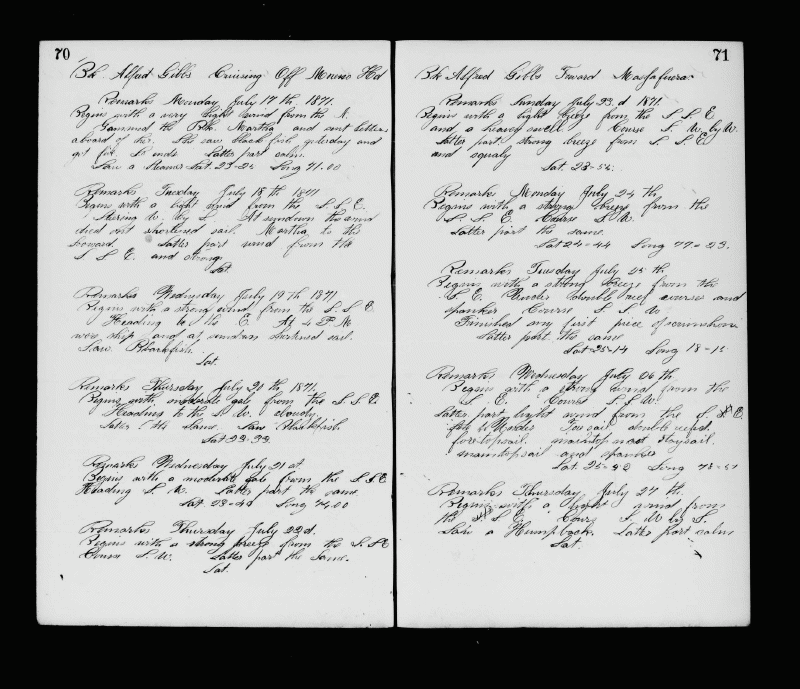 70
Bk Alfred Gibbs Cruising Off Hd
Remarks Monday July 17 th 1871.
Begins with a very light wind from the N.
Gammed the Bk. Martha and sent letters
aboard of her. She saw black fish yesterday and
got five So ends Latter part calm.
Saw a Steamer Lat 23-20 Long 71.00
Remarks Tuesday July 18 th 1871
Begins with a light wind from the S.S.E.
Steering W. by S. At sundown the wind
died out shortened sail. Martha to the
leeward. Latter part wind from the
S S E and strong.
Lat.
Remarks Wednesday July 19 th 1871
Begins with a strong wind from the S.S.E
Heading to the E. At 4 P.M
wore ship and at sundown shortened sail.
Saw Blackfish.
Lat.
Remarks Thursday July 21 th, 1871.
Begins with moderate gale from the S.S.E
Heading to the S W. cloudy.
Latter the same. Saw Blackfish
Lat 23-33
Remarks Wednesday July 21 st.
Begins with a moderate gale from the S.S.E
Heading S.W. Latter part the same
Lat. 23-44 Long 74.00
Remarks Thursday July 22 d.
Begins with a strong breeze from the S.S.E
Course S.W. Latter part the same.
Lat.
71
Bk Alfred Gibbs Toward Massafuera
Remarks Sunday July 23 d 1871.
Begins with a light breeze from the S.S.E
and a heavy swell. Course S.W. by W.
Latter part strong breeze from S.S.E
and squaly
Lat. 23-54.
Remarks Monday July 24 th
Begins with a strong breeze from the
S.S.E. Course S.W.
Latter part the same.
Lat 24-44 Long 77-23.
Remarks Tuesday July 25 th
Begins with a strong breeze from the
S.E. Under double reef courses and
spanker Course S.S.W.
Finished my first piece of
Latter part the same
Lat-25-14 Long 18-15
Remarks Wednesday July 26 th.
Begins with a strong wind from the
S.E. Course S.S.W.
Latter part light wind from the S.S.E.
Under Fore sail double reefed
foretopsail. maintopmast staysail.
maintopsail and spanker
Lat. 25-32 Long 78-51
Remarks Thursday July 27 th.
Begins with a light wind from
the S.S.E. Course S.W by S.
Saw a Humpback. Latter part calm
Lat.